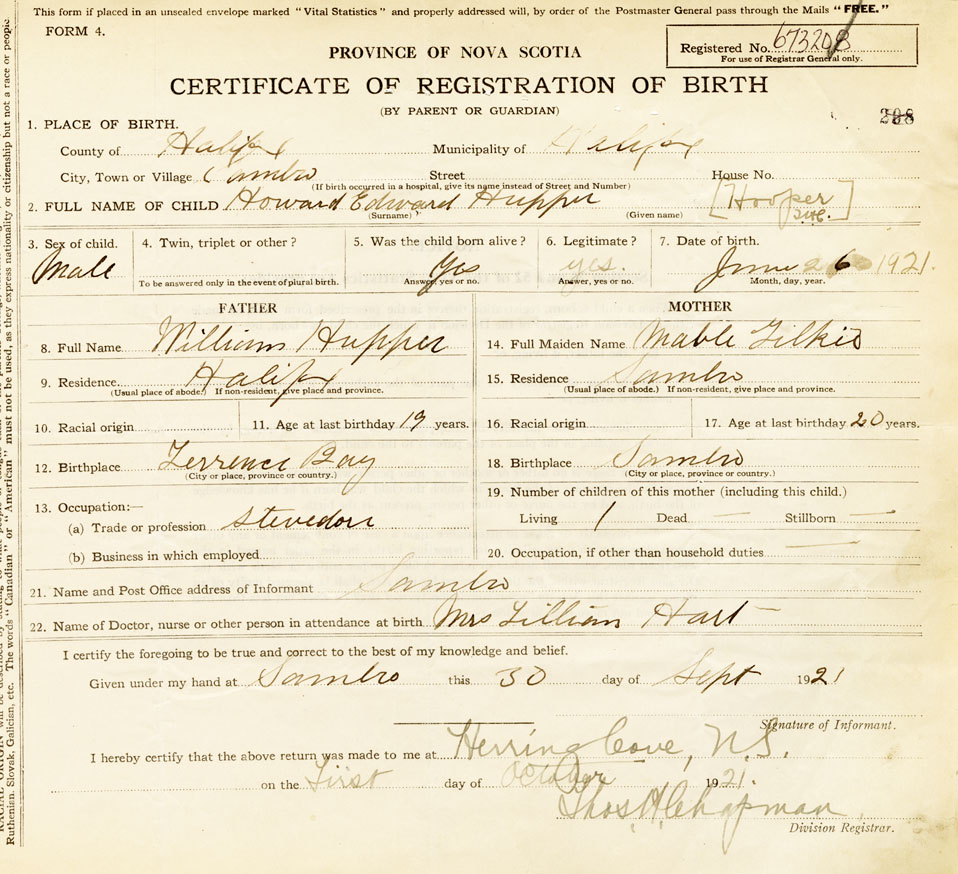 This form if placed in an unsealed envelope marked "Vital Statistics" and properly addressed will, by order of the Postmaster General pass through the Mails "FREE."
FORM 4.
Registered No. 673208
For use of Registrar General only.
PROVINCE OF NOVA SCOTIA
CERTIFICATE OF REGISTRATION OF BIRTH
(BY PARENT OR GUARDIAN)
208
1. PLACE OF BIRTH.
County of Halifax Municipality of Halifax
City, Town or Village Sambro Street House No.
(If birth occurred in a hospital, give its name instead of Street and Number)
2. FULL NAME OF CHILD Howard Edward Hupper [Hooper]
(Surname) (Given name)
3. Sex of child. 4. Twin, triplet or other? 5. Was the child born alive? 6. Legitimate? 7. Date of birth.
Male Yes yes. June 6 1921.
To be answered only in the event of plural birth. Answer, yes or no. Answer, yes or no. Month, day, year.
FATHER
8. Full Name William Hupper
9. Residence Halifax
(Usual place of abode.) If non-resident, give place and province.
10. Racial origin 11. Age at last birthday 19 years.
12. Birthplace Terrence Bay
(City or place, province or country.)
13. Occupation:—
(a) Trade or profession Stevedore
(b) Business in which employed
MOTHER
14. Full Maiden Name Mable Gilkie
15. Residence Sambro
(Usual place of abode.) If non-resident, give place and province.
16. Racial origin 17. Age at last birthday 20 years.
18. Birthplace Sambro
(City or place, province or country.)
19. Number of children of this mother (including this child.)
Living 1 Dead — Stillborn —
20. Occupation, if other than household duties —
21. Name and Post Office address of Informant Sambro
22. Name of Doctor, nurse or other person in attendance at birth Mrs Lillian Hart
I certify the foregoing to be true and correct to the best of my knowledge and belief.
Given under my hand at Sambro this 30 day of Sept 1921
Signature of Informant.
I hereby certify that the above return was made to me at Herring Cove, N.S.
on the First day of October 1921.
Thos H Chapman
Division Registrar.
Ruthenian, Slovak, Galician, etc. The words "Canadian" or "American" must not be used, as they express nationality or citizenship but not a race or people.